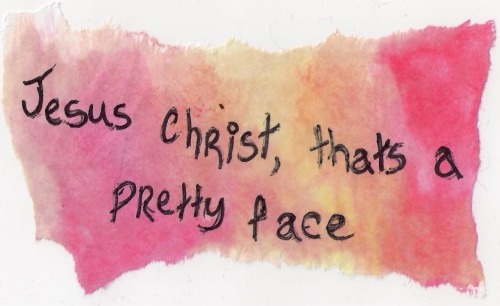 Jesus Christ, thats a
pretty face